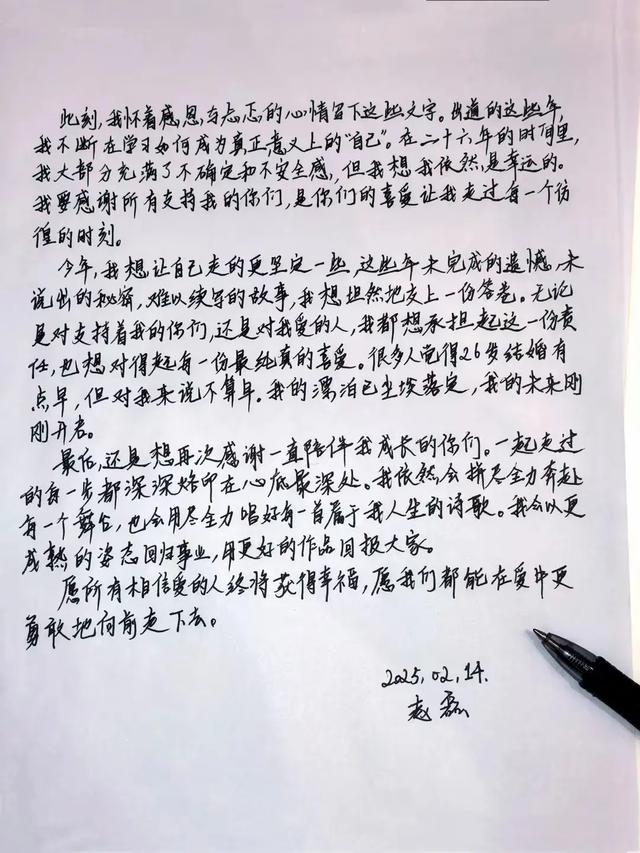 此刻，我怀着感恩与忐忑的心情留下这些文字。出道的这些年，
我不断在学习如何成为真正意义上的“自己”。在二十六年的时间里，
我大部分充满了不确定和不安全感，但我想我依然是幸运的。
我要感谢所有支持我的你们，是你们的喜爱让我走过每一个彷
徨的时刻。
今年，我想让自己走的更坚定一些，这些年未完成的遗憾，未
说出的秘密，难以续写的故事，我想坦然地交上一份答卷。无论
是对支持着我的你们，还是对我爱的人，我都想承担起这一份责
任，也想对得起每一份最纯真的喜爱。很多人觉得26岁结婚有
点早，但对我来说不算早。我的漂泊已尘埃落定，我的未来刚
刚开启。
最后，还是想再次感谢一直陪伴我成长的你们。一起走过
的每一步都深深烙印在心底最深处。我依然会拼尽全力奔赴
每一个舞台，也会用尽全力唱好每一首属于我人生的诗歌。我会以更
成熟的姿态回归事业，用更好的作品回报大家。
愿所有相信爱的人终将获得幸福，愿我们都能在爱中更
勇敢地向前走下去。
2025.02.14.
赵磊